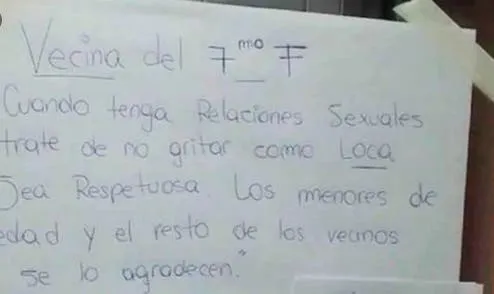 Vecina del 7mo F
Cuando tenga Relaciones Sexuales
trate de no gritar como LOCA
Sea Respetuosa. Los menores de
edad y el resto de los vecinos
se lo agradecen."